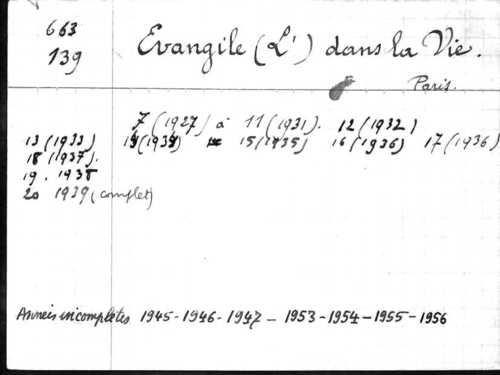 663
139
Evangile (L') dans la Vie.
Paris.
7 (1927) à 11 (1931). 12 (1932)
13 (1933) 14 (1934) 15 (1935) 16 (1936) 17 (1936)
18 (1937).
19. 1938
20 1939 (complet)
Années incomplètes 1945-1946-1947 - 1953-1954-1955-1956